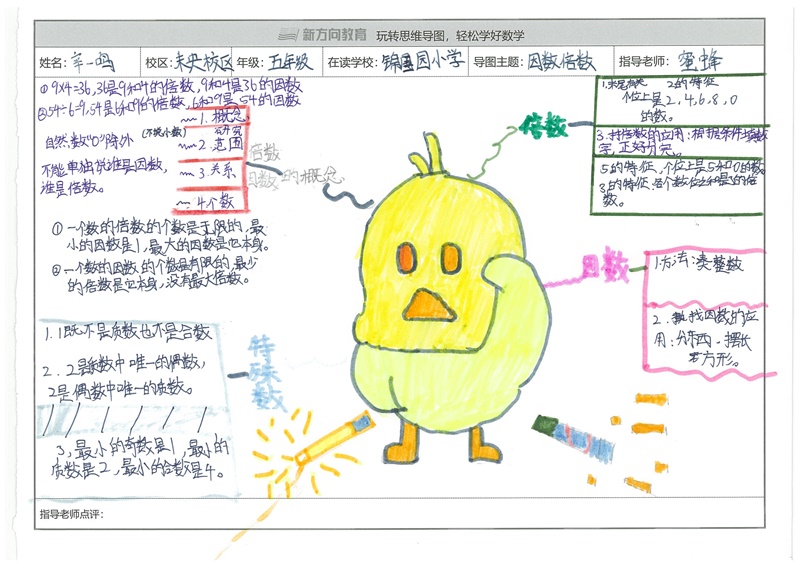 新方向教育 玩转思维导图，轻松学好数学
姓名：辛一鸣 校区：未央校区 年级：五年级 在读学校：锦园小学 导图主题：因数倍数 指导老师：蜜蜂
①9×4=36,36是9和4的倍数,9和4是36的因数
②54÷6=9,54是6和9的倍数,6和9是54的因数
1.概念
自然数"0"除外
(不找小数)
研究
2.范围
不能单独说谁是因数,
谁是倍数。
3.关系
4.个数
倍数
因数的概念
①一个数的倍数的个数是无限的,最
小的因数是1,最大的因数是它本身。
②一个数的因数的个数是有限的,最少
的倍数是它本身,没有最大倍数。
倍数
2的特征
个位上是2,4,6,8,0
的数。
3.找倍数的应用:根据条件填数
字,正好分完。
5的特征,个位上是5和0的数
3的特征,各个数位之和是3的倍
数。
因数
1.方法:凑整数
2.找因数的应
用:分东西-摆长
方形。
特殊数
1.1既不是质数也不是合数
2.2是质数中唯一的偶数,
2是偶数中唯一的质数。
3,最小的奇数是1,最小的
质数是2,最小的合数是4。
指导老师点评：